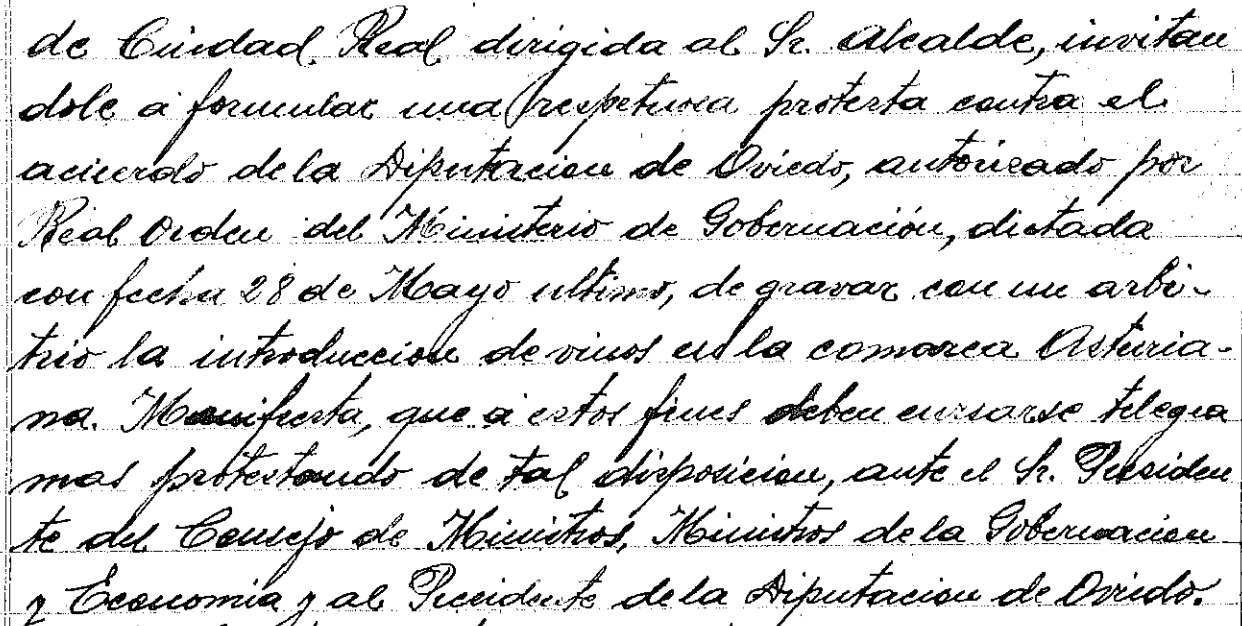 de Ciudad Real dirigida al Sr. Alcalde, invitan
dole á formular una respetuosa protesta contra el
acuerdo de la Diputacion de Oviedo, autorizado por
Real Orden del Ministerio de Gobernación, dictada
con fecha 28 de Mayo ultimo, de gravar con un arbi-
trio la introduccion de vinos en la comarca Asturia-
na. Manifiesta, que á estos fines deben cursarse telegra
mas protestando de tal disposicion, ante el Sr. Presiden
te del Consejo de Ministros, Ministros de la Gobernacion
y Economia y al Presidente de la Diputacion de Oviedo.